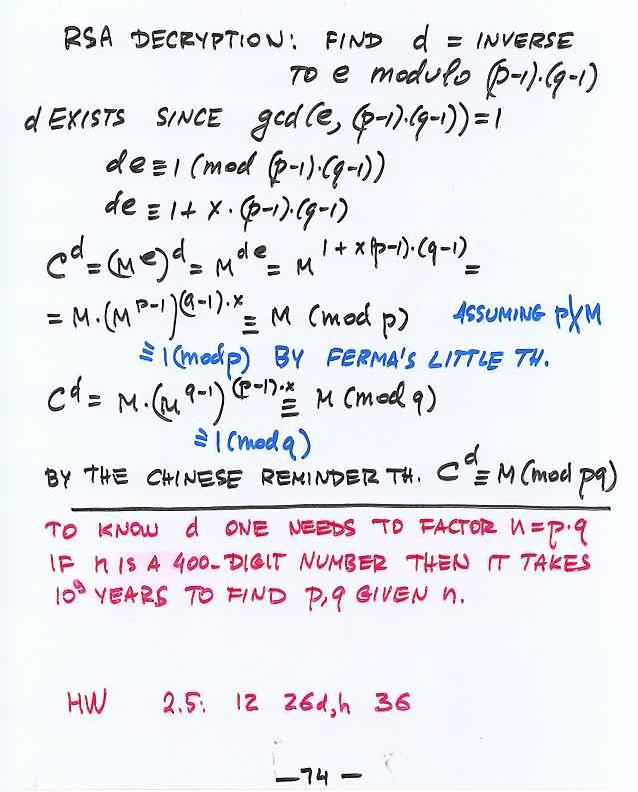 RSA DECRYPTION: FIND d = INVERSE
TO e modulo (p-1)·(q-1)
d EXISTS SINCE gcd(e, (p-1)·(q-1))=1
de≡1 (mod (p-1)·(q-1))
de ≡ 1+ x·(p-1)·(q-1)
C^d=(M^e)^d= M^de= M^1+x(p-1)·(q-1)=
= M·(M^p-1)^(q-1)·x ≡ M (mod p) ASSUMING p∤M
≡1(mod p) BY FERMA'S LITTLE TH.
C^d= M·(M^q-1)^(p-1)·x ≡ M (mod q)
≡1(mod q)
BY THE CHINESE REMINDER TH. C^d≡M(mod pq)
TO KNOW d ONE NEEDS TO FACTOR n=p·q
IF n IS A 400-DIGIT NUMBER THEN IT TAKES
10^9 YEARS TO FIND p,q GIVEN n.
HW 2.5: 12 26d,h 36
—74—